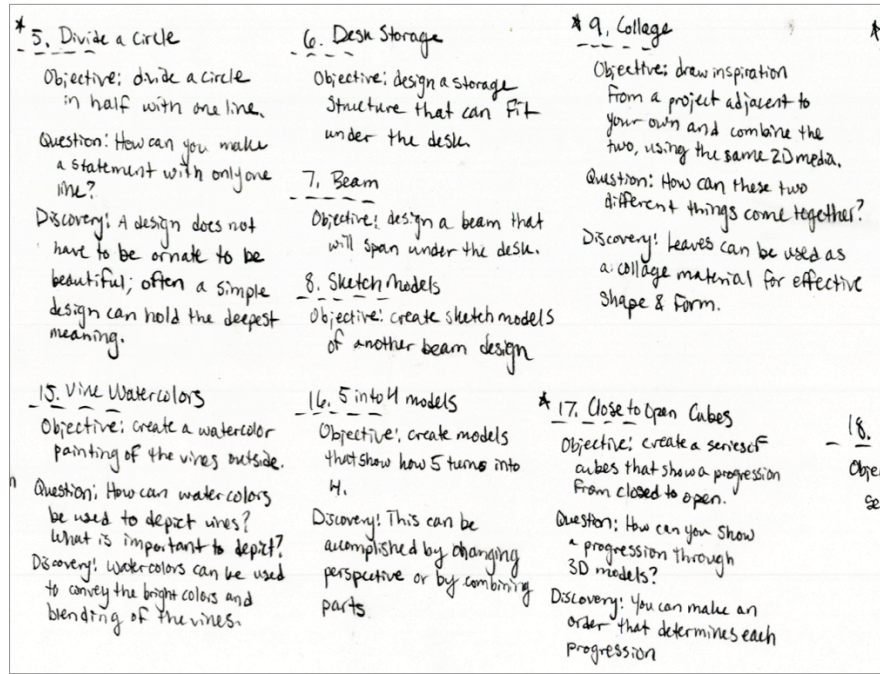 * 5. Divide a Circle
Objective: divide a circle
in half with one line.
Question: How can you make
a statement with only one
line?
Discovery: A design does not
have to be ornate to be
beautiful; often a simple
design can hold the deepest
meaning.
6. Desk Storage
Objective: design a storage
structure that can fit
under the desk.
7. Beam
Objective: design a beam that
will span under the desk.
8. Sketch Models
Objective: create sketch models
of another beam design
* 9. Collage
Objective: draw inspiration
from a project adjacent to
your own and combine the
two, using the same 2D media.
Question: How can these two
different things come together?
Discovery: Leaves can be used as
a collage material for effective
shape & form.
15. Vine Watercolors
Objective: create a watercolor
painting of the vines outside.
Question: How can watercolors
be used to depict vines?
What is important to depict?
Discovery: watercolors can be used
to convey the bright colors and
blending of the vines.
16. 5 into 4 models
Objective: create models
that show how 5 turns into
4.
Discovery: This can be
accomplished by changing
perspective or by combining
parts
* 17. Close to Open Cubes
Objective: create a series of
cubes that show a progression
from closed to open.
Question: How can you show
a progression through
3D models?
Discovery: You can make an
order that determines each
progression
18.
Objec
se